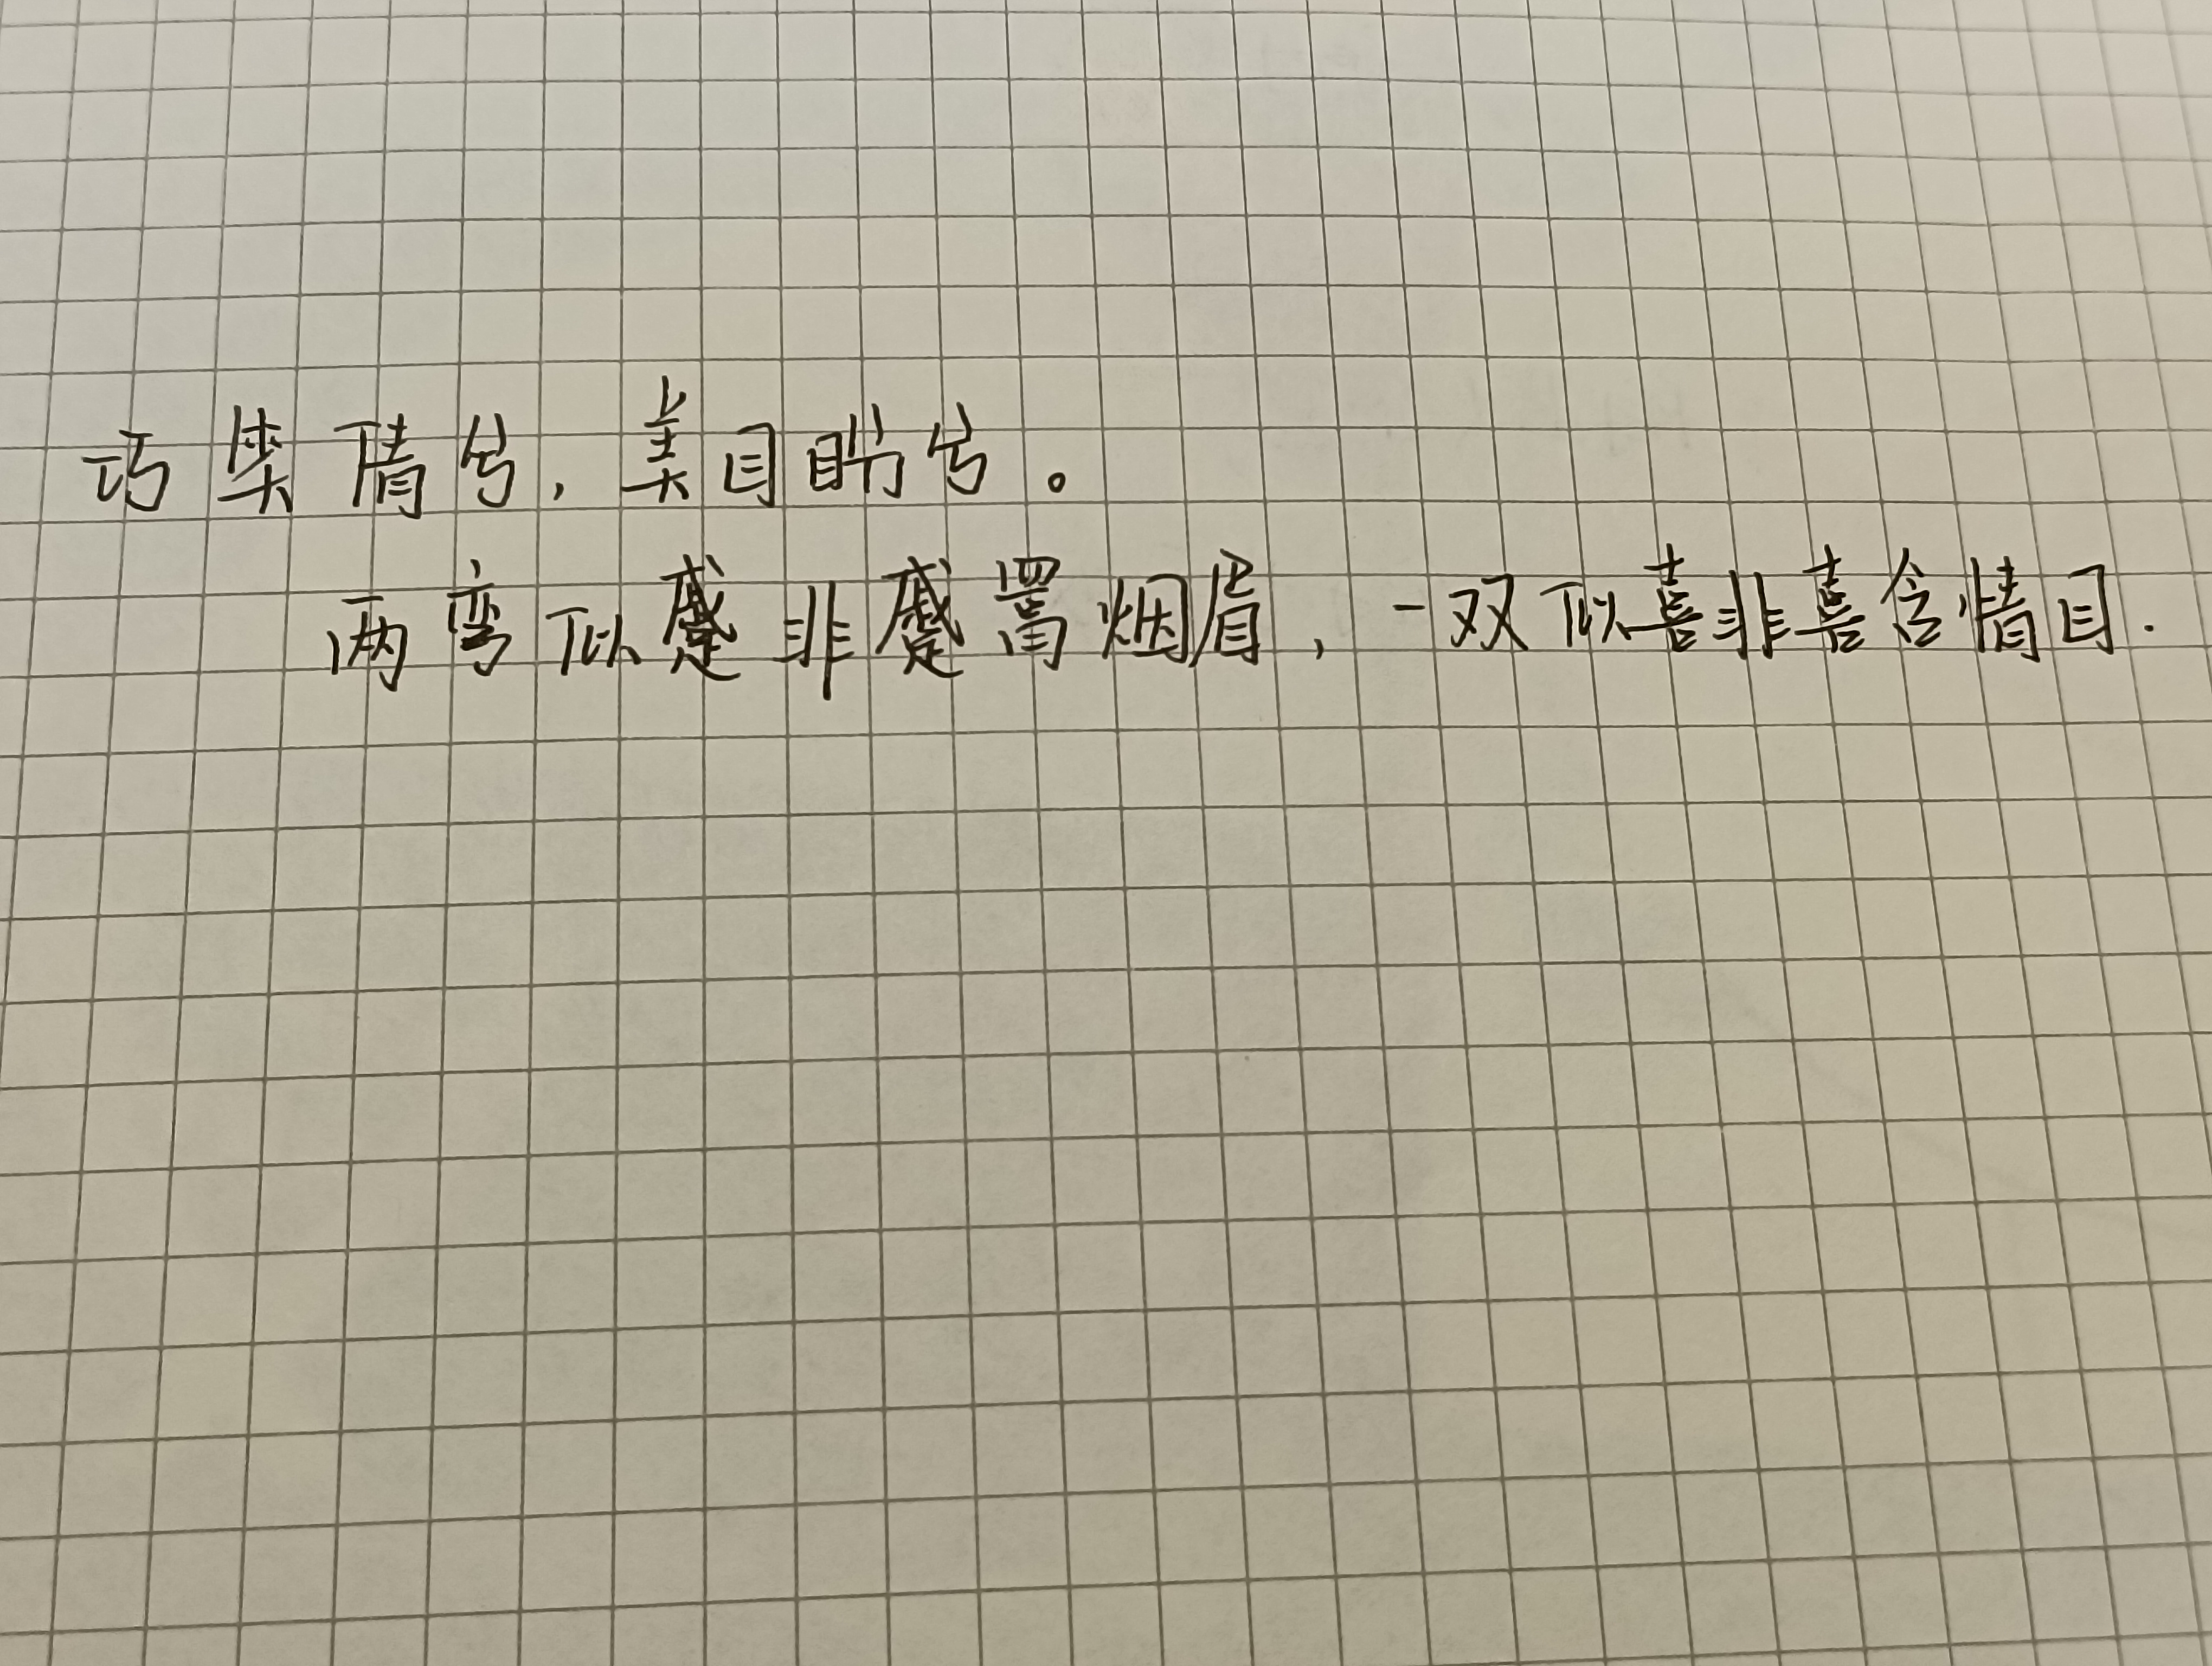 巧笑倩兮，美目盼兮。
两弯似蹙非蹙罥烟眉，一双似喜非喜含情目.